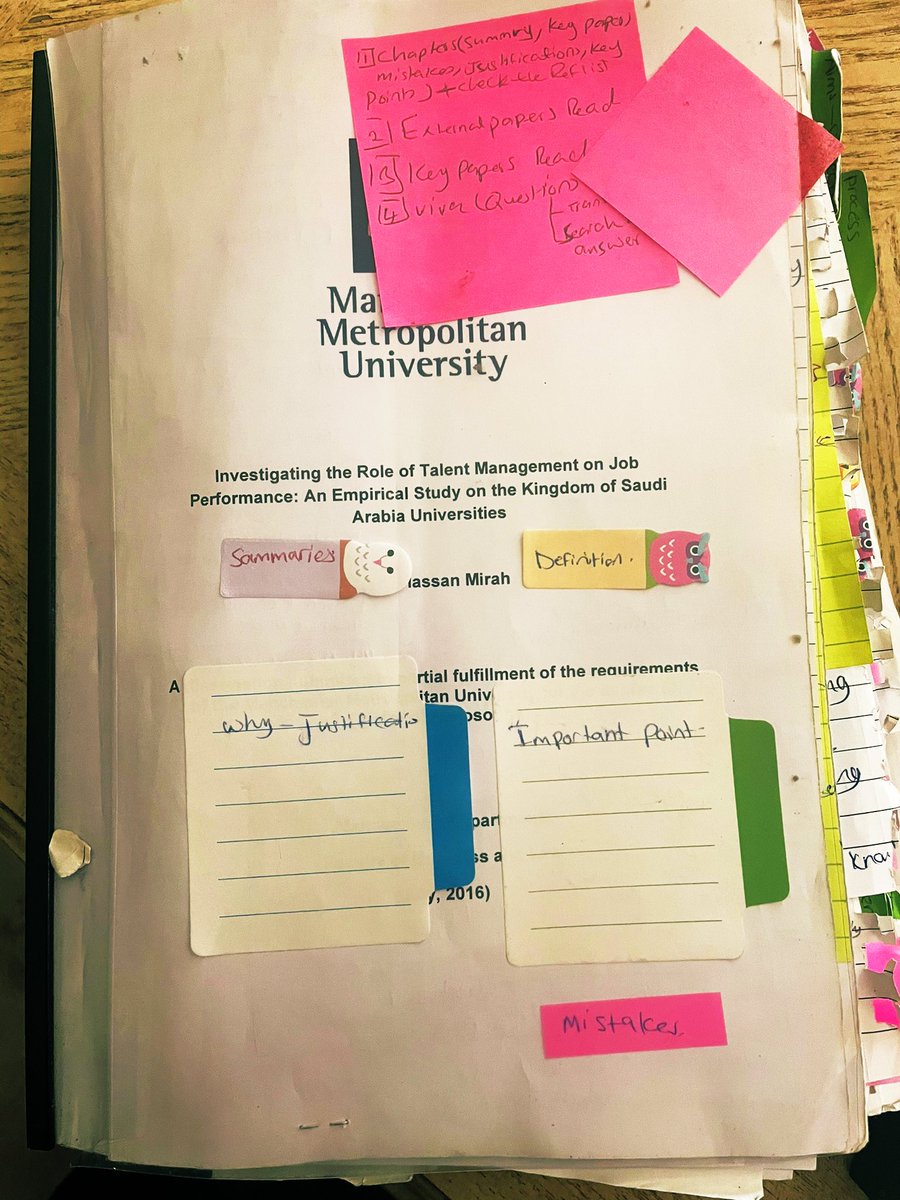 1 Chapters (summry, key paper,
mistakes, Justifications, key
Points) + check the Ref list
2 External papers Read
3 Key papers Read
4 viva (Question
search
answer
process
Ma
Metropolitan
University
Investigating the Role of Talent Management on Job
Performance: An Empirical Study on the Kingdom of Saudi
Arabia Universities
Summaries
Definition.
assan Mirah
A rtial fulfillment of the requirements
itan Univ
oso
why - Justificatio
Important point
part
ss a
y, 2016)
Know
Mistakes